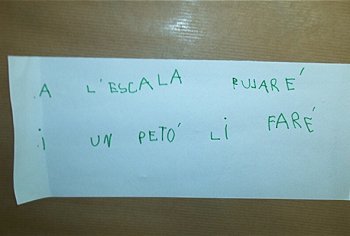 A L'ESCALA PUJARÉ
i UN PETÓ Li FARÉ